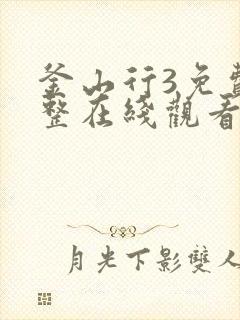 釜山行3免費
整在綫觀看
月光下影雙人